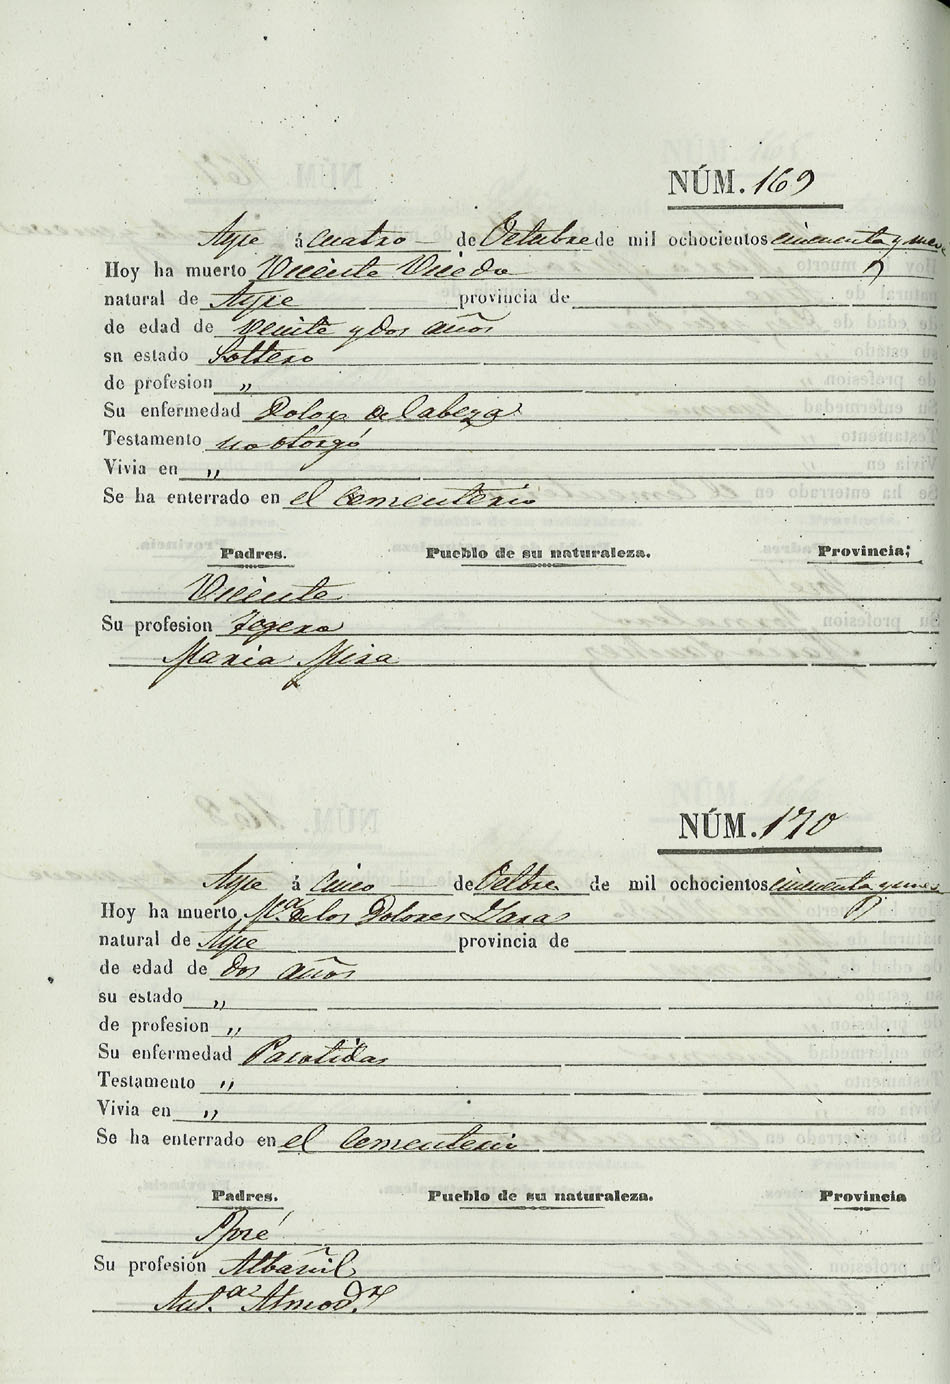 NÚM. 169
Aspe á Cuatro de Octubre de mil ochocientos cincuenta y nueve
Hoy ha muerto Vicente Vicedo
natural de Aspe provincia de
de edad de veinte y dos años
su estado Soltero
de profesion „
Su enfermedad Dolor de Cabeza
Testamento no otorgó
Vivia en „
Se ha enterrado en el Cementerio
Padres. Pueblo de su naturaleza. Provincia.
Vicente
Su profesion Tegero
Maria Mira
NÚM. 170
Aspe á Cinco de Octbre de mil ochocientos cincuenta y nueve
Hoy ha muerto M.ª de los Dolores
natural de Aspe provincia de
de edad de dos años
su estado „
de profesion „
Su enfermedad Parotidas
Testamento „
Vivia en „
Se ha enterrado en el Cementerio
Padres. Pueblo de su naturaleza. Provincia
José
Su profesion Albañil
Ant.ª Almod.r